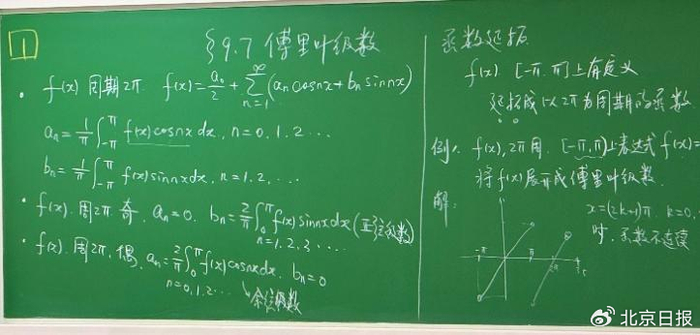 1
§9.7 傅里叶级数
· f(x) 周期2π f(x)=a₀/2+∑_{n=1}^{∞}(aₙcosnx+bₙsinnx)
aₙ=1/π∫_{-π}^{π}f(x)cosnxdx, n=0,1,2···
bₙ=1/π∫_{-π}^{π}f(x)sinnxdx, n=1,2,···
· f(x).周2π.奇, aₙ=0. bₙ=2/π∫_0^π f(x)sinnxdx(正弦级数)
n=1,2,3,···
· f(x).周2π.偶, aₙ=2/π∫_0^π f(x)cosnxdx. bₙ=0
n=0,1,2··· 余弦级数
函数延拓
f(x).[-π,π]上有定义
延拓成以2π为周期的函数
例1. f(x),2π周. [-π,π)上表达式f(x)=
将f(x)展开成傅里叶级数.
解:
x=(2k+1)π, k=0.
时,函数不连续
-π π
北京日报